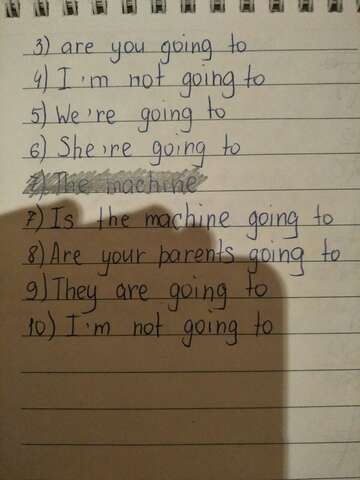 3) are you going to
4) I'm not going to
5) We're going to
6) She're going to
7) The machine
7) Is the machine going to
8) Are your parents going to
9) They are going to
10) I'm not going to